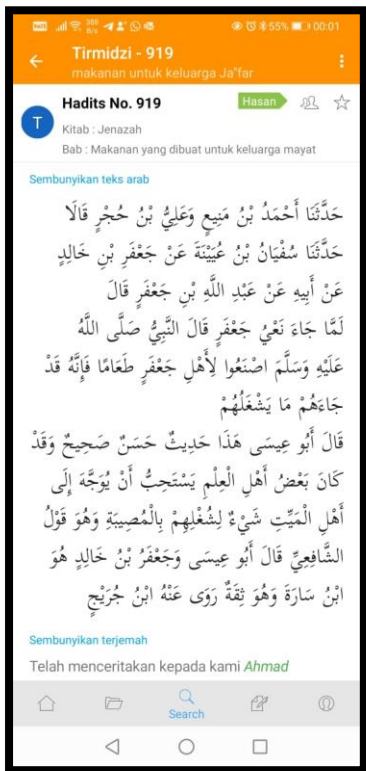 389 B/s
55% 00:01
Tirmidzi - 919
makanan untuk keluarga Ja"far
Hadits No. 919
Hasan
T
Kitab : Jenazah
Bab : Makanan yang dibuat untuk keluarga mayat
Sembunyikan teks arab
حَدَّثَنَا أَحْمَدُ بْنُ مَنِيعٍ وَعَلِيُّ بْنُ حُجْرٍ قَالَا
حَدَّثَنَا سُفْيَانُ بْنُ عُيَيْنَةَ عَنْ جَعْفَرِ بْنِ خَالِدٍ
عَنْ أَبِيهِ عَنْ عَبْدِ اللَّهِ بْنِ جَعْفَرٍ قَالَ
لَمَّا جَاءَ نَعْيُ جَعْفَرٍ قَالَ النَّبِيُّ صَلَّى اللَّهُ
عَلَيْهِ وَسَلَّمَ اصْنَعُوا لِأَهْلِ جَعْفَرٍ طَعَامًا فَإِنَّهُ قَدْ
جَاءَهُمْ مَا يَشْغَلُهُمْ
قَالَ أَبُو عِيسَى هَذَا حَدِيثٌ حَسَنٌ صَحِيحٌ وَقَدْ
كَانَ بَعْضُ أَهْلِ الْعِلْمِ يَسْتَحِبُّ أَنْ يُوَجَّهَ إِلَى
أَهْلِ الْمَيِّتِ شَيْءٌ لِشُغْلِهِمْ بِالْمُصِيبَةِ وَهُوَ قَوْلُ
الشَّافِعِيِّ قَالَ أَبُو عِيسَى وَجَعْفَرُ بْنُ خَالِدٍ هُوَ
ابْنُ سَارَةَ وَهُوَ ثِقَةٌ رَوَى عَنْهُ ابْنُ جُرَيْجٍ
Sembunyikan terjemah
Telah menceritakan kepada kami Ahmad
Search